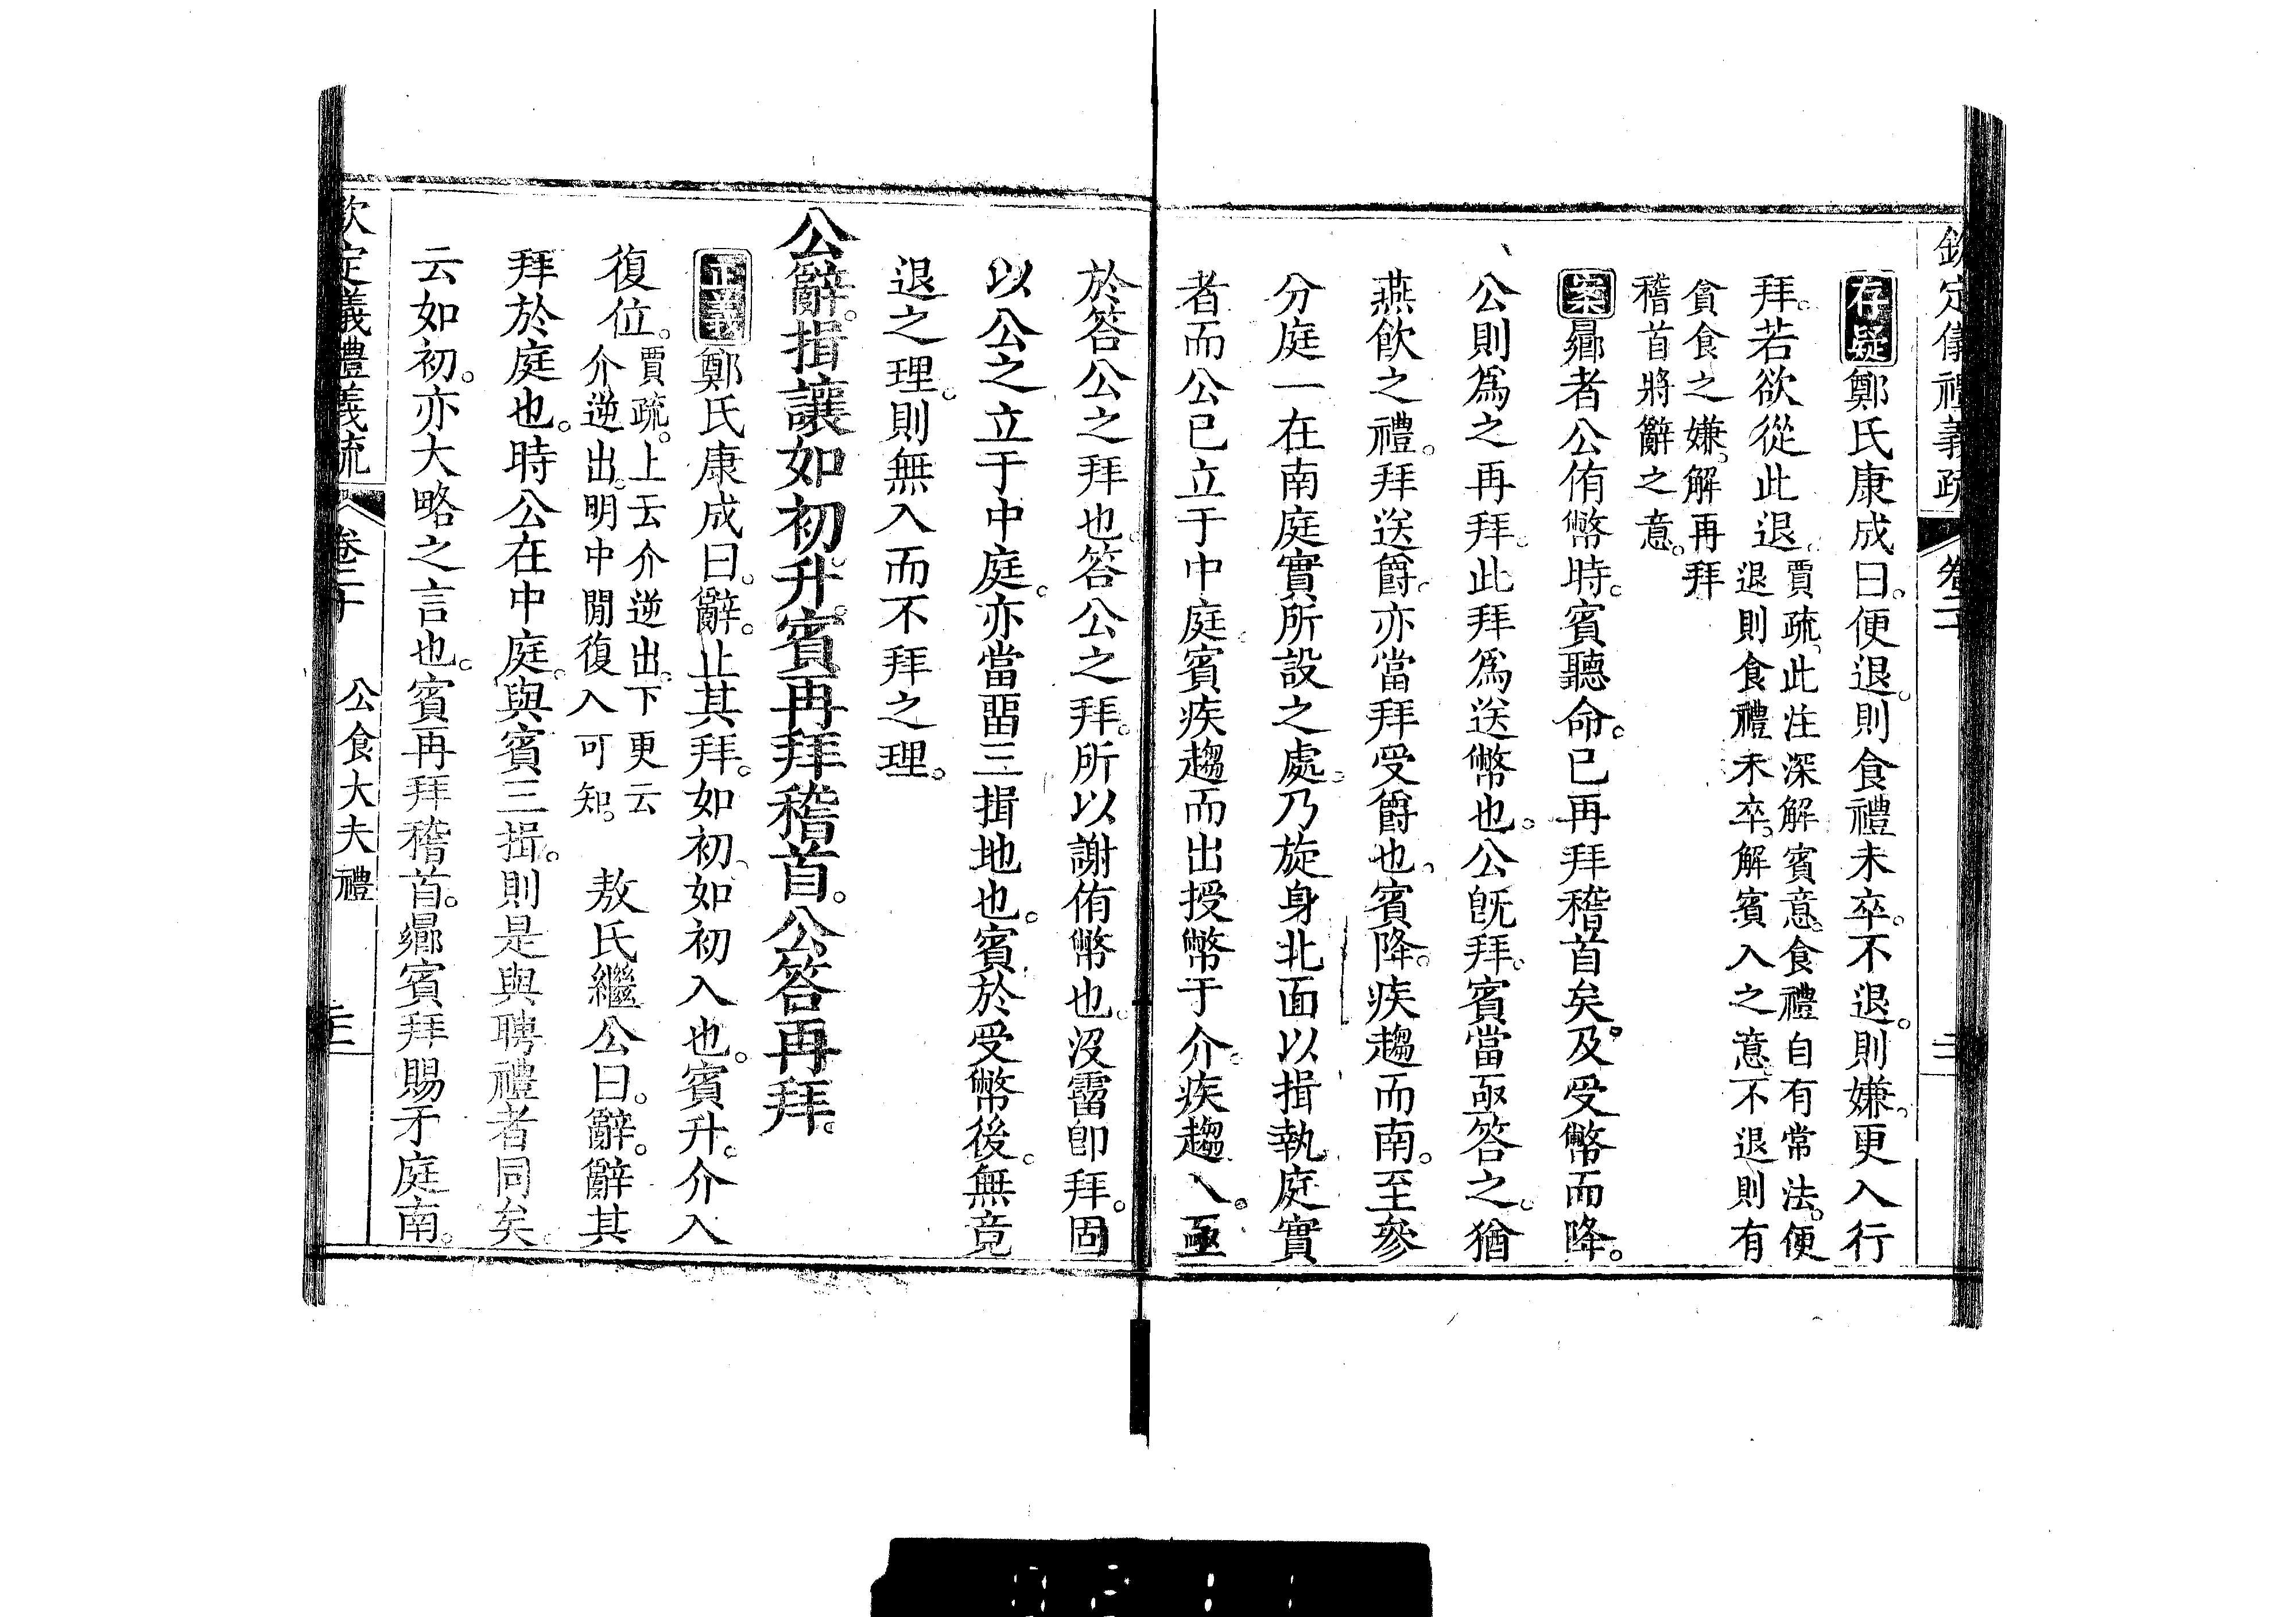 欽定儀禮義疏 卷二十
存疑鄭氏康成曰。便退。則食禮未卒。不退。則嫌。更入行
拜。若欲從此退。賈疏。此注深解賓意。食禮自有常法。便
退則食禮未卒。解賓入之意。不退則有
貪食之嫌。解再拜
稽首將辭之意。
案曏者公侑幣時。賓聽命。已再拜稽首矣。及受幣而降。
公則爲之再拜。此拜爲送幣也。公旣拜。賓當亟答之。猶
燕飲之禮。拜送爵。亦當拜受爵也。賓降。疾趨而南。至參
分庭一在南庭實所設之處。乃旋身北面以揖執庭實
者而公已立于中庭。賓疾趨而出授幣于介。疾趨入。亟
於答公之拜也。答公之拜。所以謝侑幣也。沒霤卽拜。固
以公之立于中庭。亦當霤三揖地也。賓於受幣後。無竟
退之理。則無入而不拜之理。
公辭。揖讓如初。升。賓再拜稽首。公答再拜。
正義鄭氏康成曰。辭。止其拜。如初。如初入也。賓升。介入
復位。賈疏。上云介逆出。下更云
介逆出。明中閒復入可知。 敖氏繼公曰。辭。辭其
拜於庭也。時公在中庭。與賓三揖。則是與聘禮者同矣。
云如初。亦大略之言也。賓再拜稽首。曏賓拜賜于庭南。
欽定儀禮義疏 卷二十 公食大夫禮